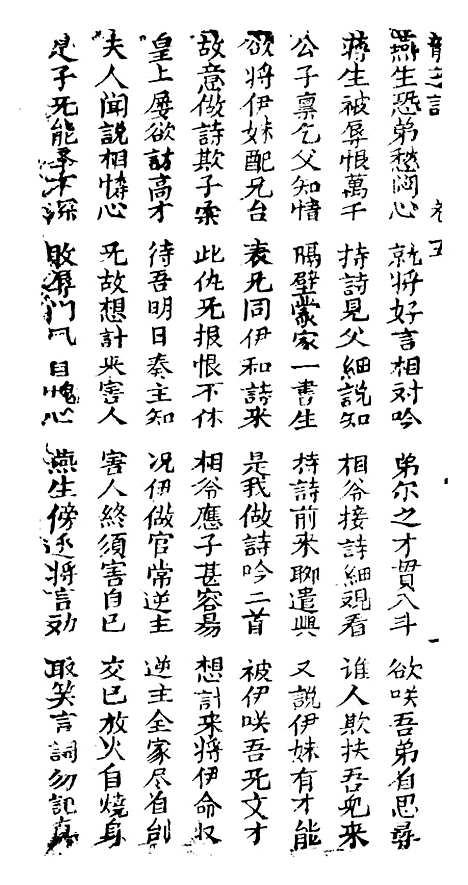 卷五
燕生恐弟愁悶心 就將好言相对吟 弟尔之才貫八斗 欲咲吾弟自思尋
蒋生被辱恨萬千 持詩見父細說知 相爷接詩細观看 谁人欺扶吾兒来
公子禀乞父知情 隔壁蒙家一書生 持詩前来聊遣興 又說伊妹有才能
欲將伊妹配兄台 表兄同伊和詩来 是我做詩吟二首 被伊咲吾旡文才
故意做詩欺子柔 此仇旡报恨不休 相爷應子甚容易 想計来將伊命收
皇上屡欲討高才 待吾明日奏主知 况伊做官常逆主 逆主全家尽自刣
夫人聞說相怜心 旡故想計来害人 害人終須害自己 交己放火自燒身
是子旡能才深 敗辱門风自愧心 燕生傍边將言劝 取笑言詞勿記真